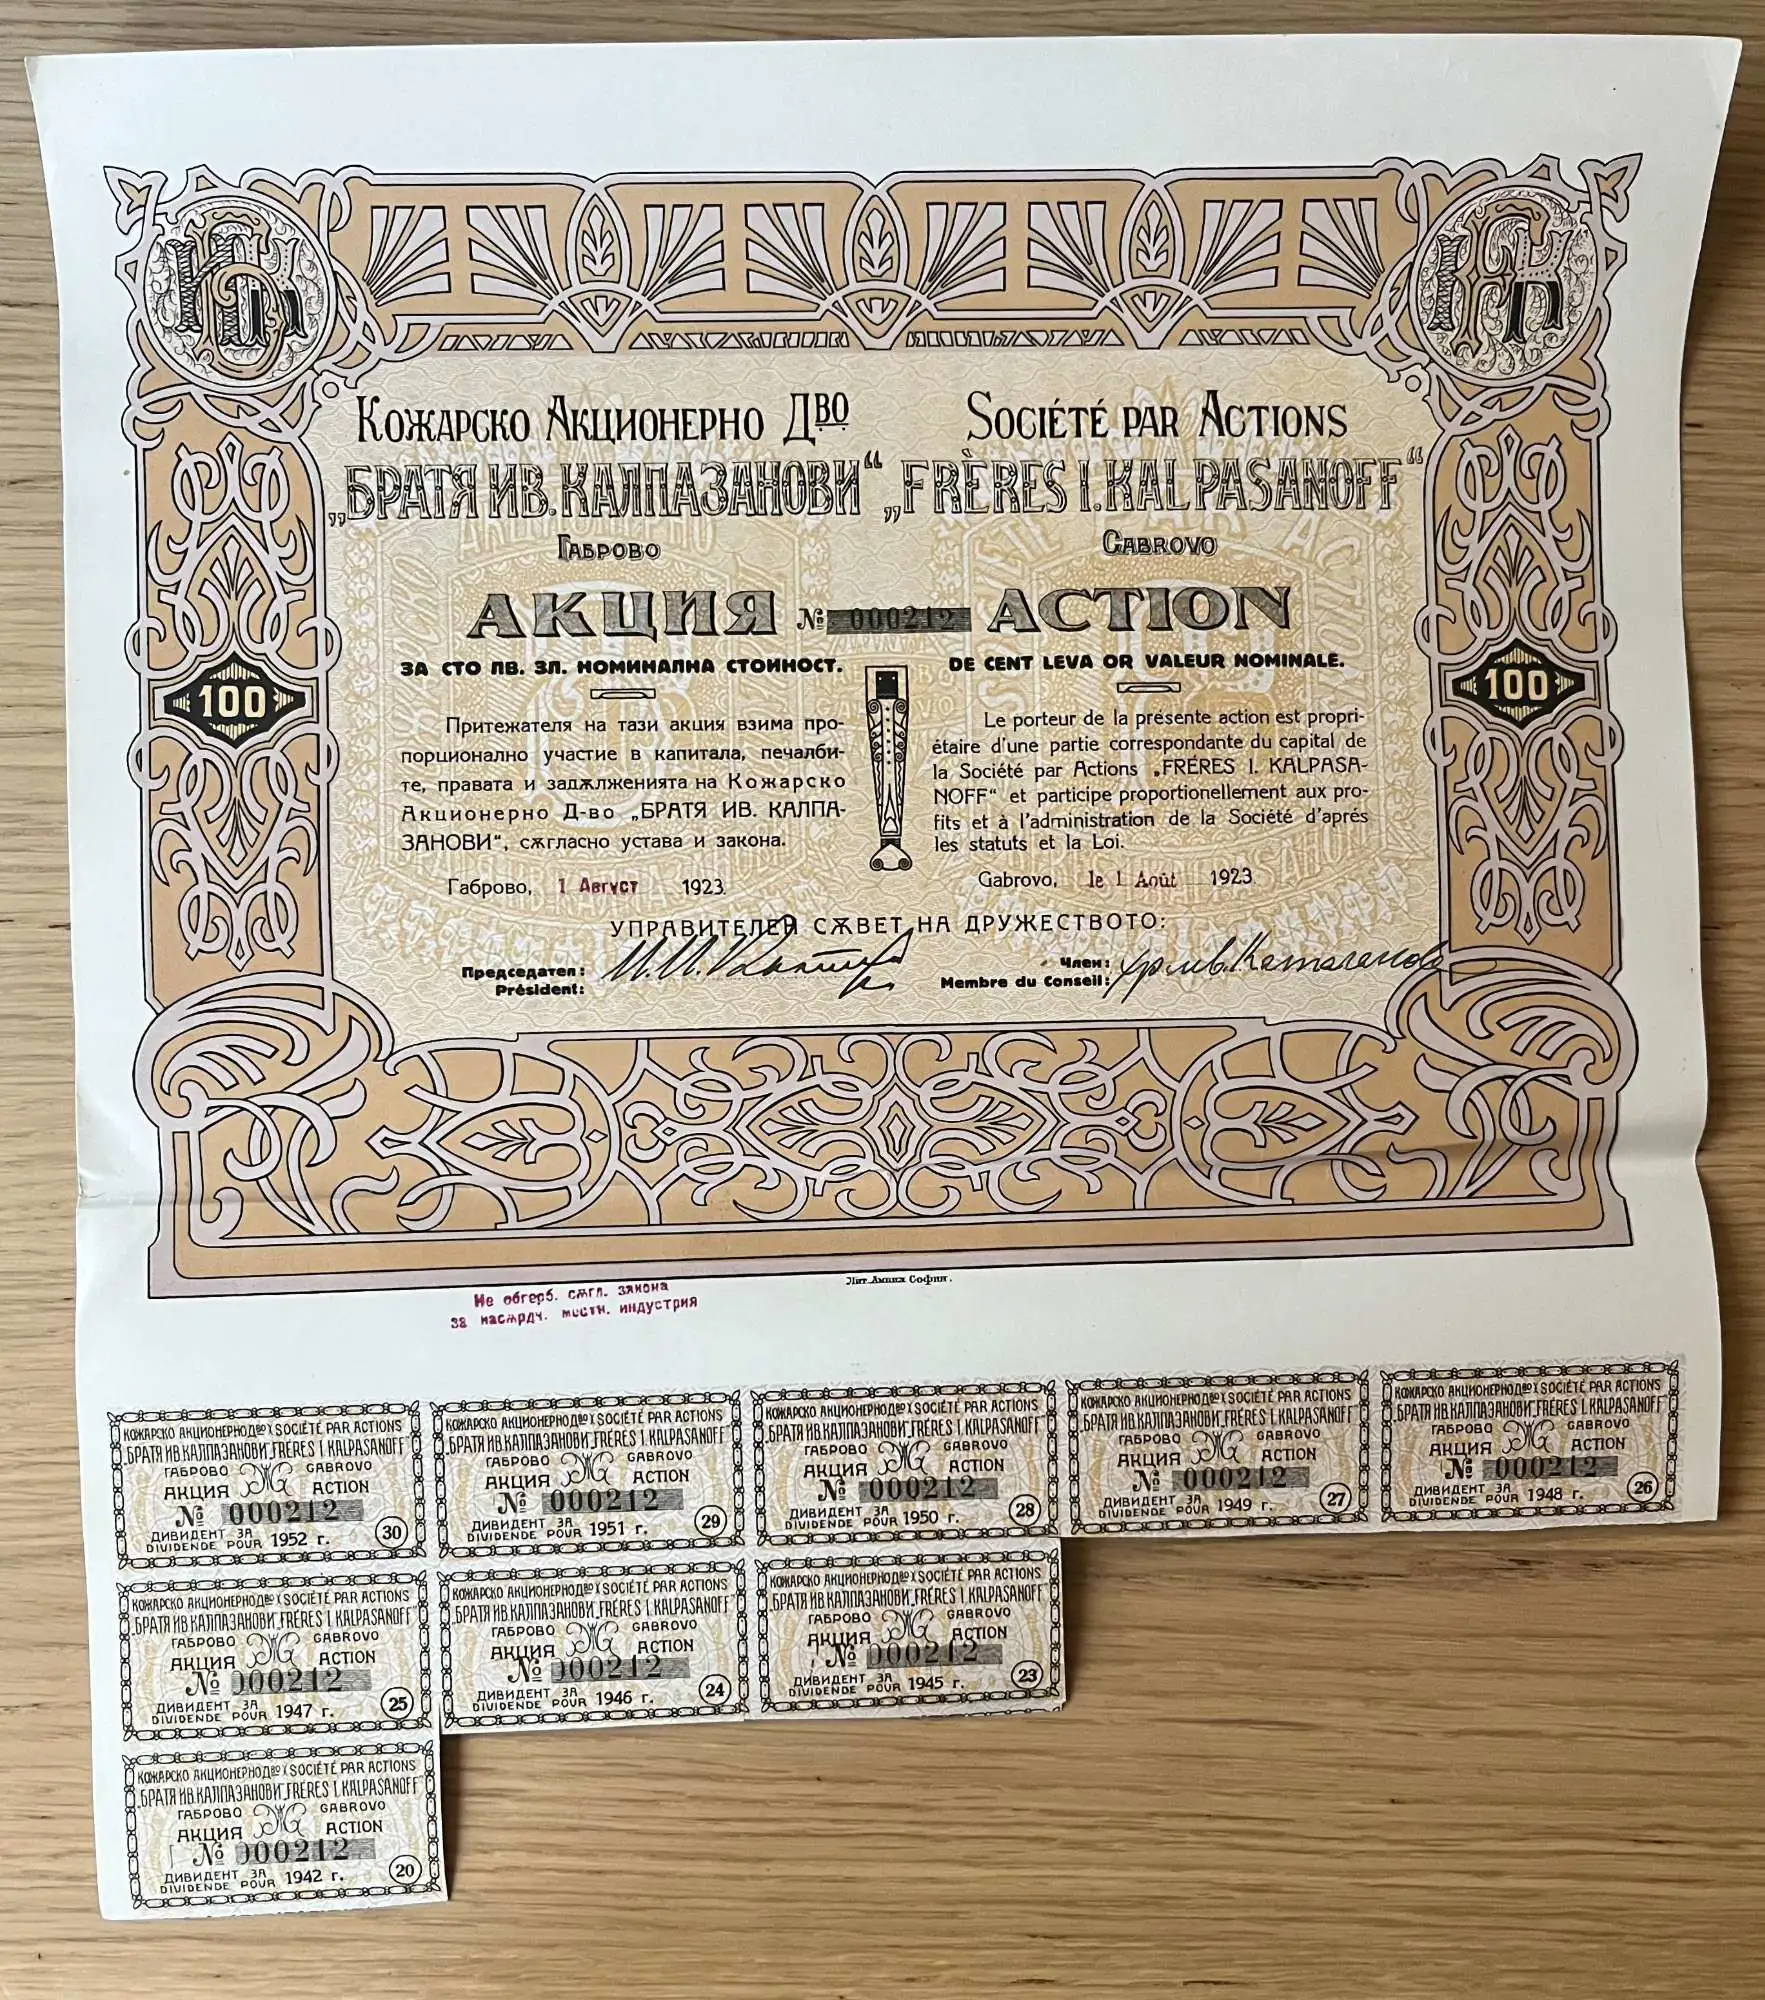 Кожарско Акционерно Д<u>во</u>
„БРАТЯ ИВ. КАЛПАЗАНОВИ“
Габрово
Société par Actions
„FRÈRES I. KALPASANOFF“
Gabrovo
АКЦИЯ № 000212 ACTION
ЗА СТО ЛВ. ЗЛ. НОМИНАЛНА СТОЙНОСТ.
DE CENT LEVA OR VALEUR NOMINALE.
100
100
Притежателя на тази акция взима про-
порционално участие в капитала, печалби-
те, правата и задѫлженията на Кожарско
Акционерно Д-во „БРАТЯ ИВ. КАЛПА-
ЗАНОВИ“, сѫгласно устава и закона.
Габрово, 1 Август 1923.
Le porteur de la présente action est propri-
étaire d'une partie correspondante du capital de
la Société par Actions „FRÉRES I. KALPASA-
NOFF“ et participe proportionellement aux pro-
fits et à l'administration de la Société d'aprés
les statuts et la Loi.
Gabrovo, le 1 Août 1923.
УПРАВИТЕЛЕН СѪВЕТ НА ДРУЖЕСТВОТО:
Председател:
Président:
Член:
Membre du Conseil:
Лит. Амиха София.
Не обгерб. сѫгл. закона
за насѫрдч. местн. индустрия
КОЖАРСКО АКЦИОНЕРНО Дво SOCIÉTÉ PAR ACTIONS
„БРАТЯ ИВ. КАЛПАЗАНОВИ„ FRÉRES I. KALPASANOFF“
ГАБРОВО GABROVO
АКЦИЯ ACTION
№ 000212
ДИВИДЕНТ ЗА
DIVIDENDE POUR 1952 г. 30
КОЖАРСКО АКЦИОНЕРНО Дво SOCIÉTÉ PAR ACTIONS
„БРАТЯ ИВ. КАЛПАЗАНОВИ„ FRÉRES I. KALPASANOFF“
ГАБРОВО GABROVO
АКЦИЯ ACTION
№ 000212
ДИВИДЕНТ ЗА
DIVIDENDE POUR 1951 г. 29
КОЖАРСКО АКЦИОНЕРНО Дво SOCIÉTÉ PAR ACTIONS
„БРАТЯ ИВ. КАЛПАЗАНОВИ„ FRÉRES I. KALPASANOFF“
ГАБРОВО GABROVO
АКЦИЯ ACTION
№ 000212
ДИВИДЕНТ ЗА
DIVIDENDE POUR 1950 г. 28
КОЖАРСКО АКЦИОНЕРНО Дво SOCIÉTÉ PAR ACTIONS
„БРАТЯ ИВ. КАЛПАЗАНОВИ„ FRÉRES I. KALPASANOFF“
ГАБРОВО GABROVO
АКЦИЯ ACTION
№ 000212
ДИВИДЕНТ ЗА
DIVIDENDE POUR 1949 г. 27
КОЖАРСКО АКЦИОНЕРНО Дво SOCIÉTÉ PAR ACTIONS
„БРАТЯ ИВ. КАЛПАЗАНОВИ„ FRÉRES I. KALPASANOFF“
ГАБРОВО GABROVO
АКЦИЯ ACTION
№ 000212
ДИВИДЕНТ ЗА
DIVIDENDE POUR 1948 г. 26
КОЖАРСКО АКЦИОНЕРНО Дво SOCIÉTÉ PAR ACTIONS
„БРАТЯ ИВ. КАЛПАЗАНОВИ„ FRÉRES I. KALPASANOFF“
ГАБРОВО GABROVO
АКЦИЯ ACTION
№ 000212
ДИВИДЕНТ ЗА
DIVIDENDE POUR 1947 г. 25
КОЖАРСКО АКЦИОНЕРНО Дво SOCIÉTÉ PAR ACTIONS
„БРАТЯ ИВ. КАЛПАЗАНОВИ„ FRÉRES I. KALPASANOFF“
ГАБРОВО GABROVO
АКЦИЯ ACTION
№ 000212
ДИВИДЕНТ ЗА
DIVIDENDE POUR 1946 г. 24
КОЖАРСКО АКЦИОНЕРНО Дво SOCIÉTÉ PAR ACTIONS
„БРАТЯ ИВ. КАЛПАЗАНОВИ„ FRÉRES I. KALPASANOFF“
ГАБРОВО GABROVO
АКЦИЯ ACTION
№ 000212
ДИВИДЕНТ ЗА
DIVIDENDE POUR 1945 г. 23
КОЖАРСКО АКЦИОНЕРНО Дво SOCIÉTÉ PAR ACTIONS
„БРАТЯ ИВ. КАЛПАЗАНОВИ„ FRÉRES I. KALPASANOFF“
ГАБРОВО GABROVO
АКЦИЯ ACTION
№ 000212
ДИВИДЕНТ ЗА
DIVIDENDE POUR 1942 г. 20